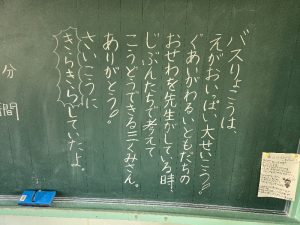 バスりょこうは、
えがおいっぱい大せいこう!!
ぐあいがわるいともだちの
おせわを先生がしている時、
じぶんたちで考えて
こうどうできる三くみさん。
ありがとう!!
さいこうに
きらきらしていたよ。
分
間